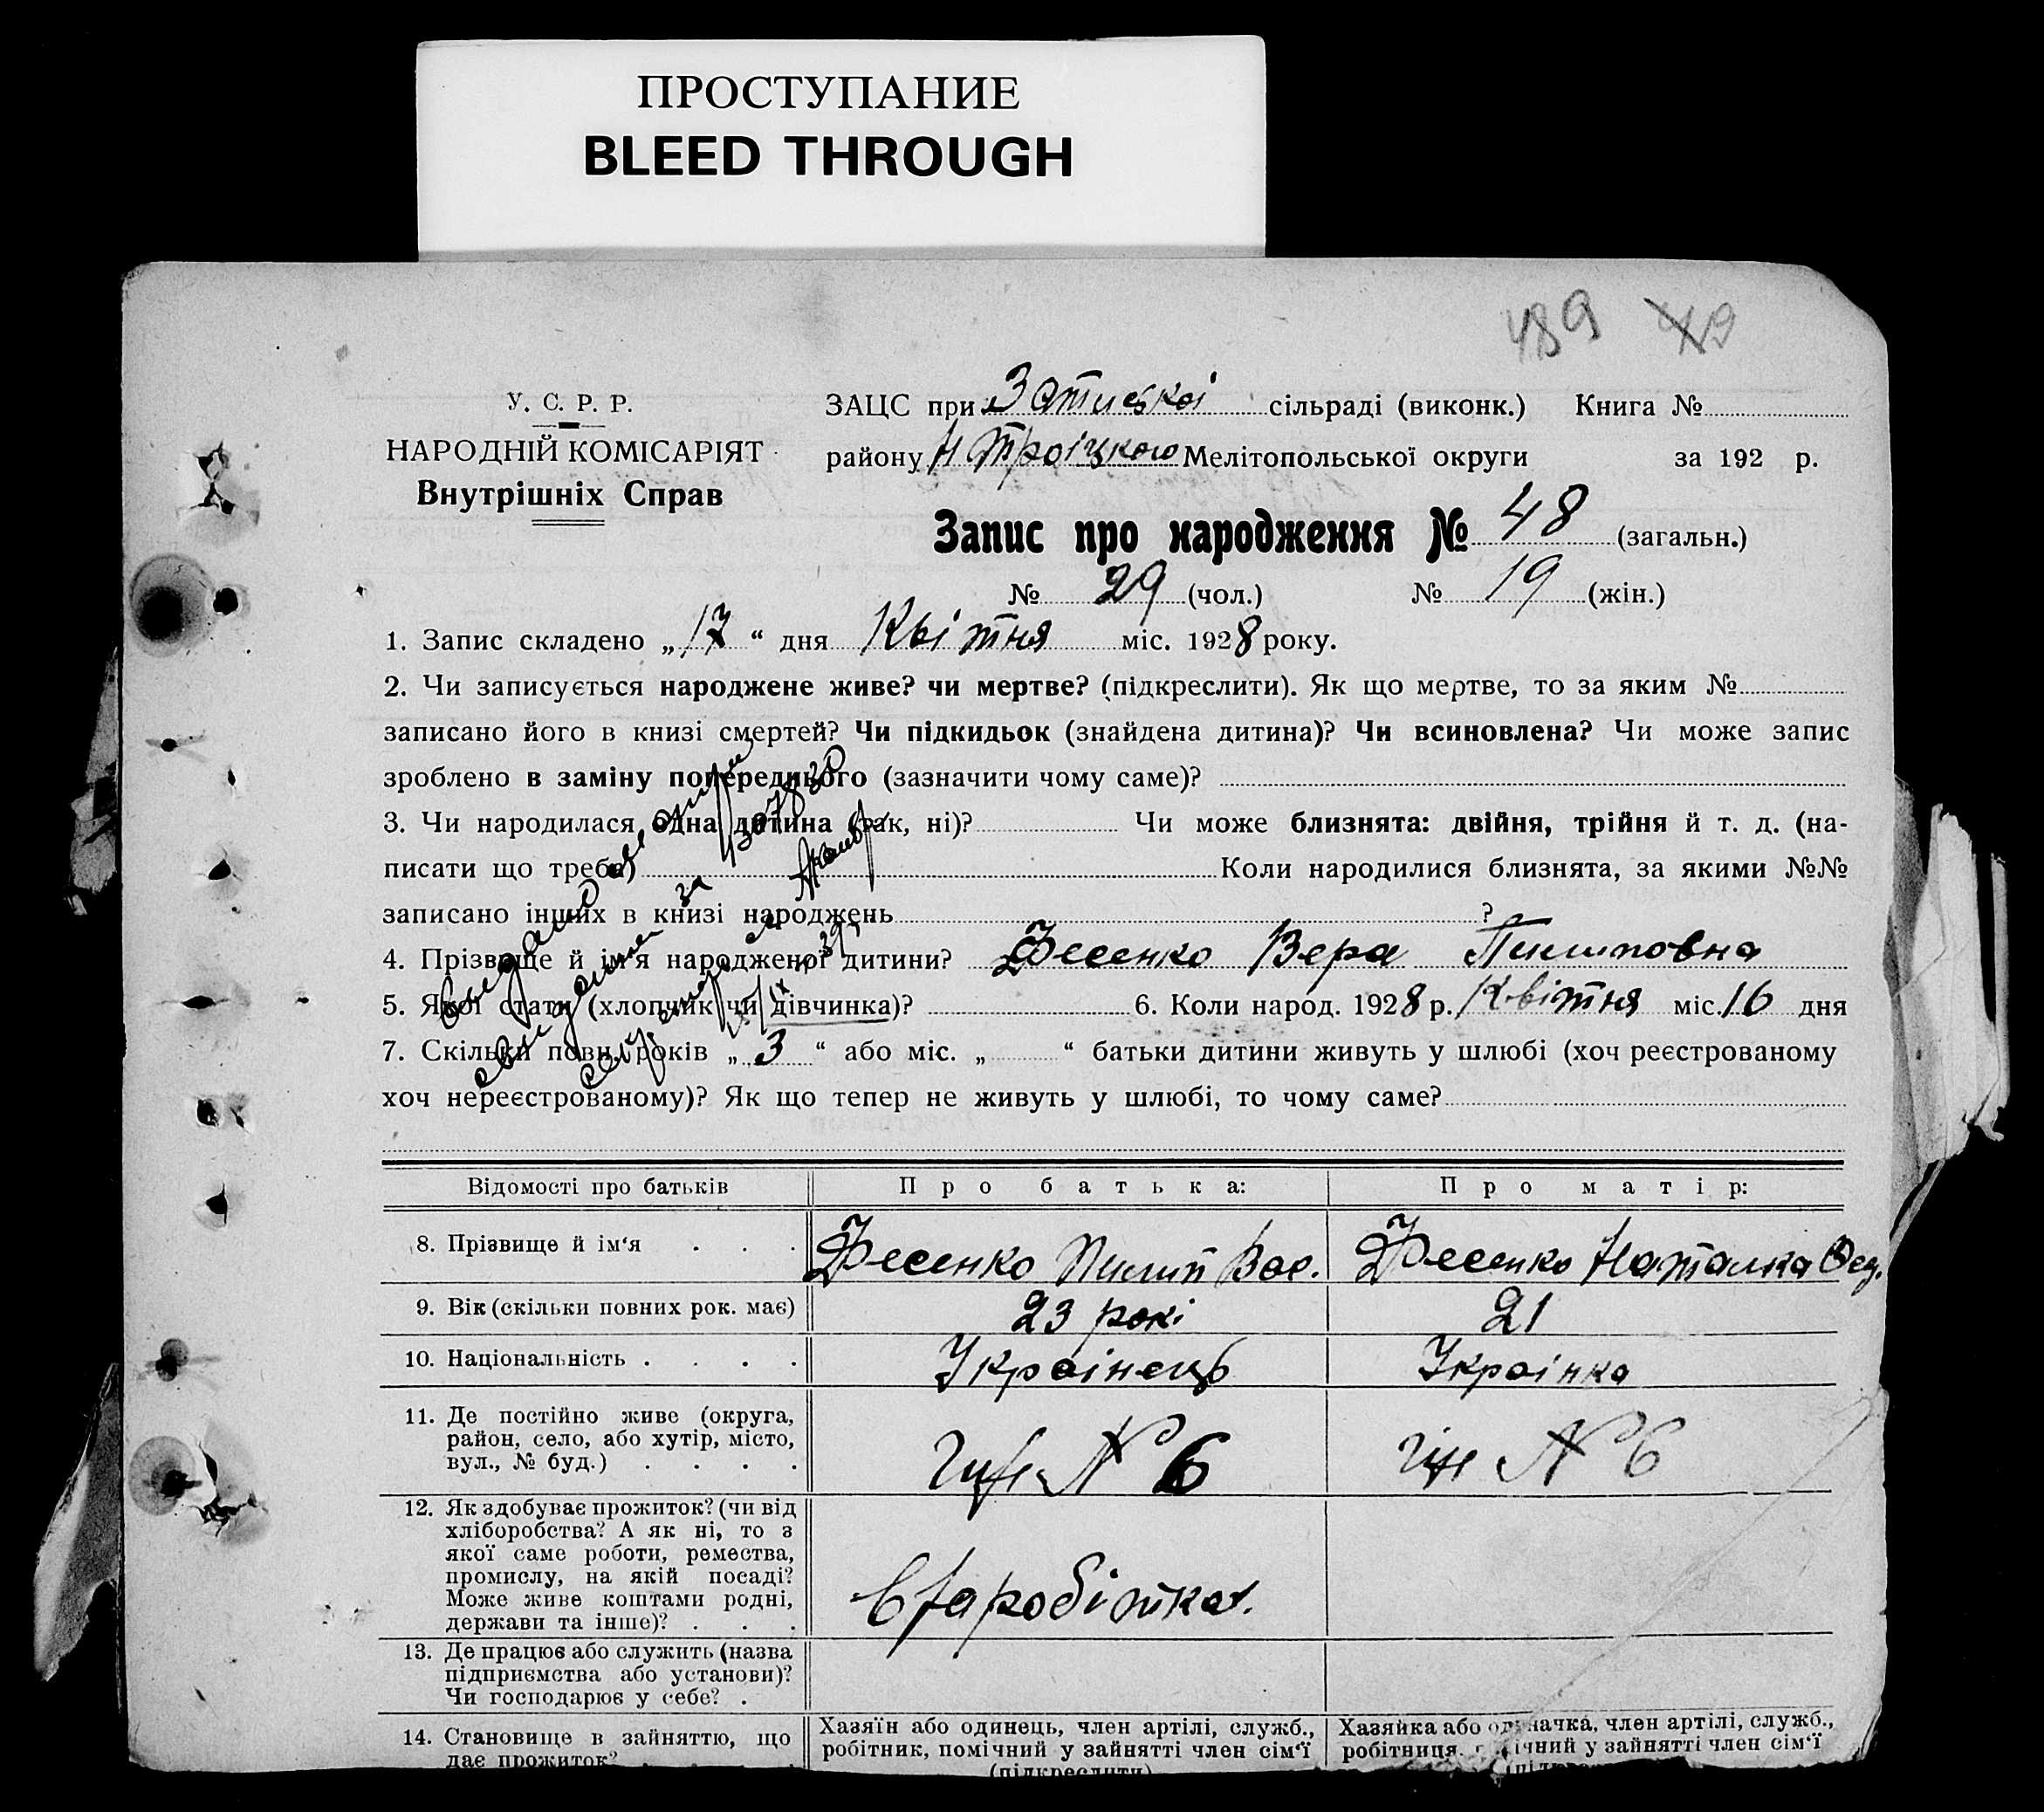 ПРОСТУПАНИЕ
BLEED THROUGH
489 49
У. С. Р. Р.
НАРОДНІЙ КОМІСАРІЯТ
Внутрішніх Справ
ЗАЦС при сільраді (виконк.) Книга №
району Н Троіцкого Мелітопольської округи за 192 р.
Запис про народження № 48 (загальн.)
№ 29 (чол.) № 19 (жін.)
1. Запис складено „17“ дня Квітня міс. 1928 року.
2. Чи записується народжене живе? чи мертве? (підкреслити). Як що мертве, то за яким №
записано його в книзі смертей? Чи підкидьок (знайдена дитина)? Чи всиновлена? Чи може запис
зроблено в заміну попереднього (зазначити чому саме)?
3. Чи народилася одна дитина (так, ні)? Чи може близнята: двійня, трійня й т. д. (на-
писати що треба) Коли народилися близнята, за якими №№
записано інших в книзі народжень ?
4. Прізвище й ім'я народженої дитини? Фесенко Вера Пилиповна
5. Якої статі (хлопчик чи дівчинка)? 6. Коли народ. 1928 р. Квітня міс. 16 дня
7. Скільки повн. років „3“ або міс. „ “ батьки дитини живуть у шлюбі (хоч реєстрованому
хоч нереєстрованому)? Як що тепер не живуть у шлюбі, то чому саме?
Відомості про батьків Про батька: Про матір:
8. Прізвище й ім'я . . . Фесенко Пилип Вас. Фесенко Наталка Фед.
9. Вік (скільки повних рок. має) 23 рокі 21
10. Національність . . . . Украінець Украінка
11. Де постійно живе (округа,
район, село, або хутір, місто,
вул., № буд.) . . . .
N 6 N 6
12. Як здобуває прожиток? (чи від
хліборобства? А як ні, то з
якої саме роботи, ремества,
промислу, на якій посаді?
Може живе коштами родні,
держави та інше)? . . .
13. Де працює або служить (назва
підприємства або установи)?
Чи господарює у себе? .
14. Становище в зайняттю, що
дає прожиток? . . . .
Хазяїн або одинець, член артілі, служб.,
робітник, помічний у зайнятті член сім'ї
(підкреслити)
Хазяйка або одиначка, член артілі, служб.,
робітниця, помічний у зайнятті член сім'ї